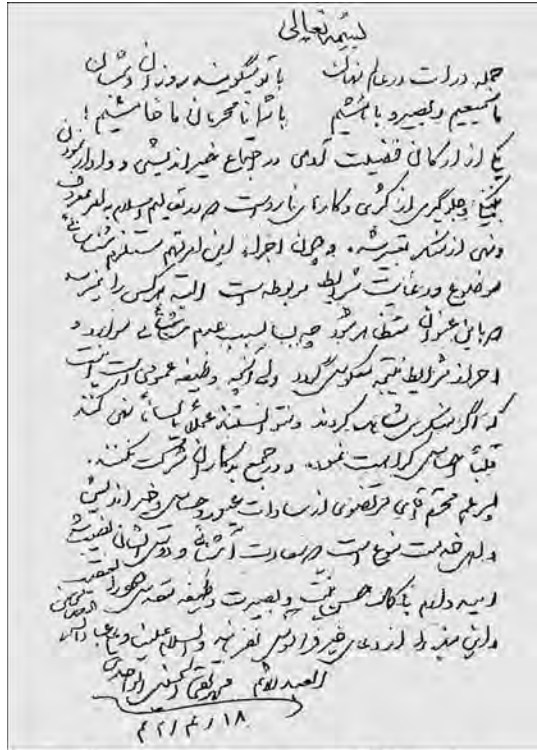 بسمه تعالی
جمله ذرات در عالم نهان با تو میگویند روزان و شبان
ما سمیعیم و بصیر و باهشیم با شما نامحرمان ما خامشیم!
یکی از ارکان فضیلت آدمی در اجتماع خیراندیشی و وادار نمودن
بنیکی و جلوگیری از کژی و کارهای نارواست که در تعالیم اسلام بامر بمعروف
و نهی از منکر تعبیر شده. و چون اجراء این امر مهم مستلزم شناسائی
موضوع و رعایت شرایط مربوطه است البته هر کسی را نمیرسد
که باین عنوان متظاهر شود چه بسا بسبب عدم شناسائی موارد و
احراز شرایط نتیجه معکوس گردد ولی آنچه وظیفه عمومی است این است
که اگر منکری مشاهده کردند و نتوانستند عملاً یا لساناً نهی کنند
قلباً احساس کراهت نموده و در جمع بدکاران شرکت نکنند.
پسر عم محترم آقای مرتضوی از سادات غیور و حساس و خیراندیش
و اهل خدمت بنوع است که سعادت آشنائی و دوستی ایشان نصیب شد
امید دارم با کمال حسن نیت و بصیرت وظیفه مقدس خود را تعقیب
و این بنده را از دعای خیر فراموش نفرمایند والسلام علینا و علی عباد الله الصالحین
العبد الاثم محمد تقی الحسینی الواحدی
۱۸ / ۴ / ۴۲